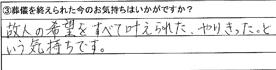 ③葬儀を終えられた今のお気持ちはいかがですか？
故人の希望をすべて叶えられた、やりきった。と
いう気持ちです。